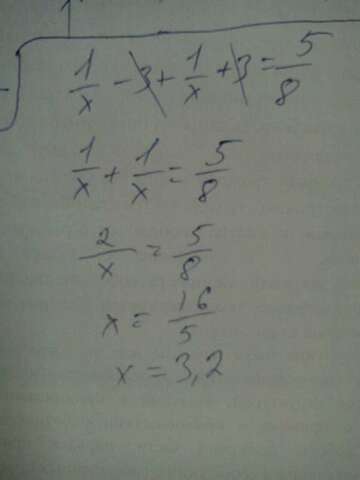 1/x - 3 + 1/x + 3 = 5/8
1/x + 1/x = 5/8
2/x = 5/8
x = 16/5
x = 3,2